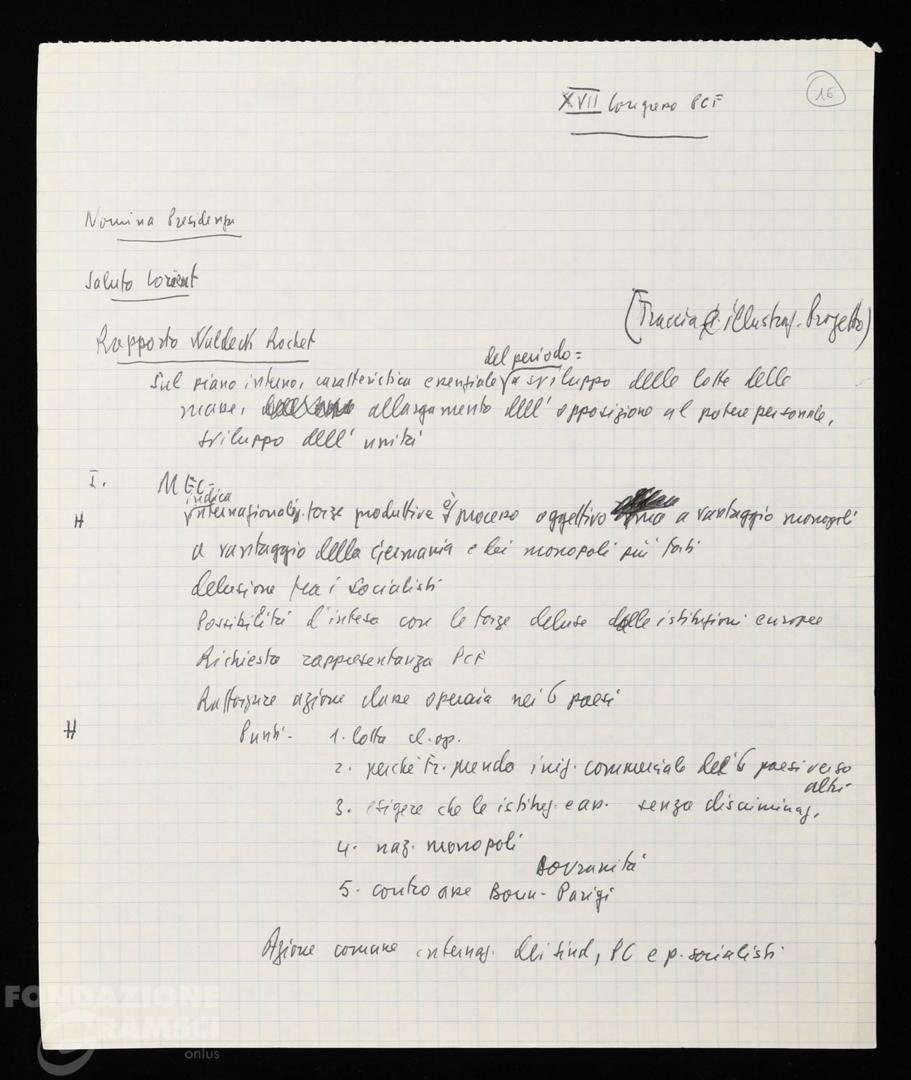 XVII Congresso PCF
16
Nomina Presidenza
Saluto Lorient
(Traccia illustraz. Progetto)
Rapporto Waldeck Rochet
del periodo =
Sul piano interno, caratteristica essenziale sviluppo delle lotte delle
masse, allargamento dell'opposizione al potere personale,
sviluppo dell'unità
I. MEC =
indica
internazionaliz. forze produttive è processo oggettivo ma a vantaggio monopoli
a vantaggio della Germania e dei monopoli più forti
delusione tra i socialisti
Possibilità d'intesa con le forze deluse dalle istituzioni europee
Richiesta rappresentanza PCF
Rafforzare azione classe operaia nei 6 paesi
Punti - 1. lotta cl. op.
2. perché Fr. prenda iniz. commerciale dei 6 paesi verso
altri
3. esigere che le istituz. eur. senza discriminaz.
4. naz. monopoli
Sovranità
5. contro asse Bonn - Parigi
Azione comune internaz. dei sind, PC e p. socialisti
FONDAZIONE
GRAMSCI
onlus